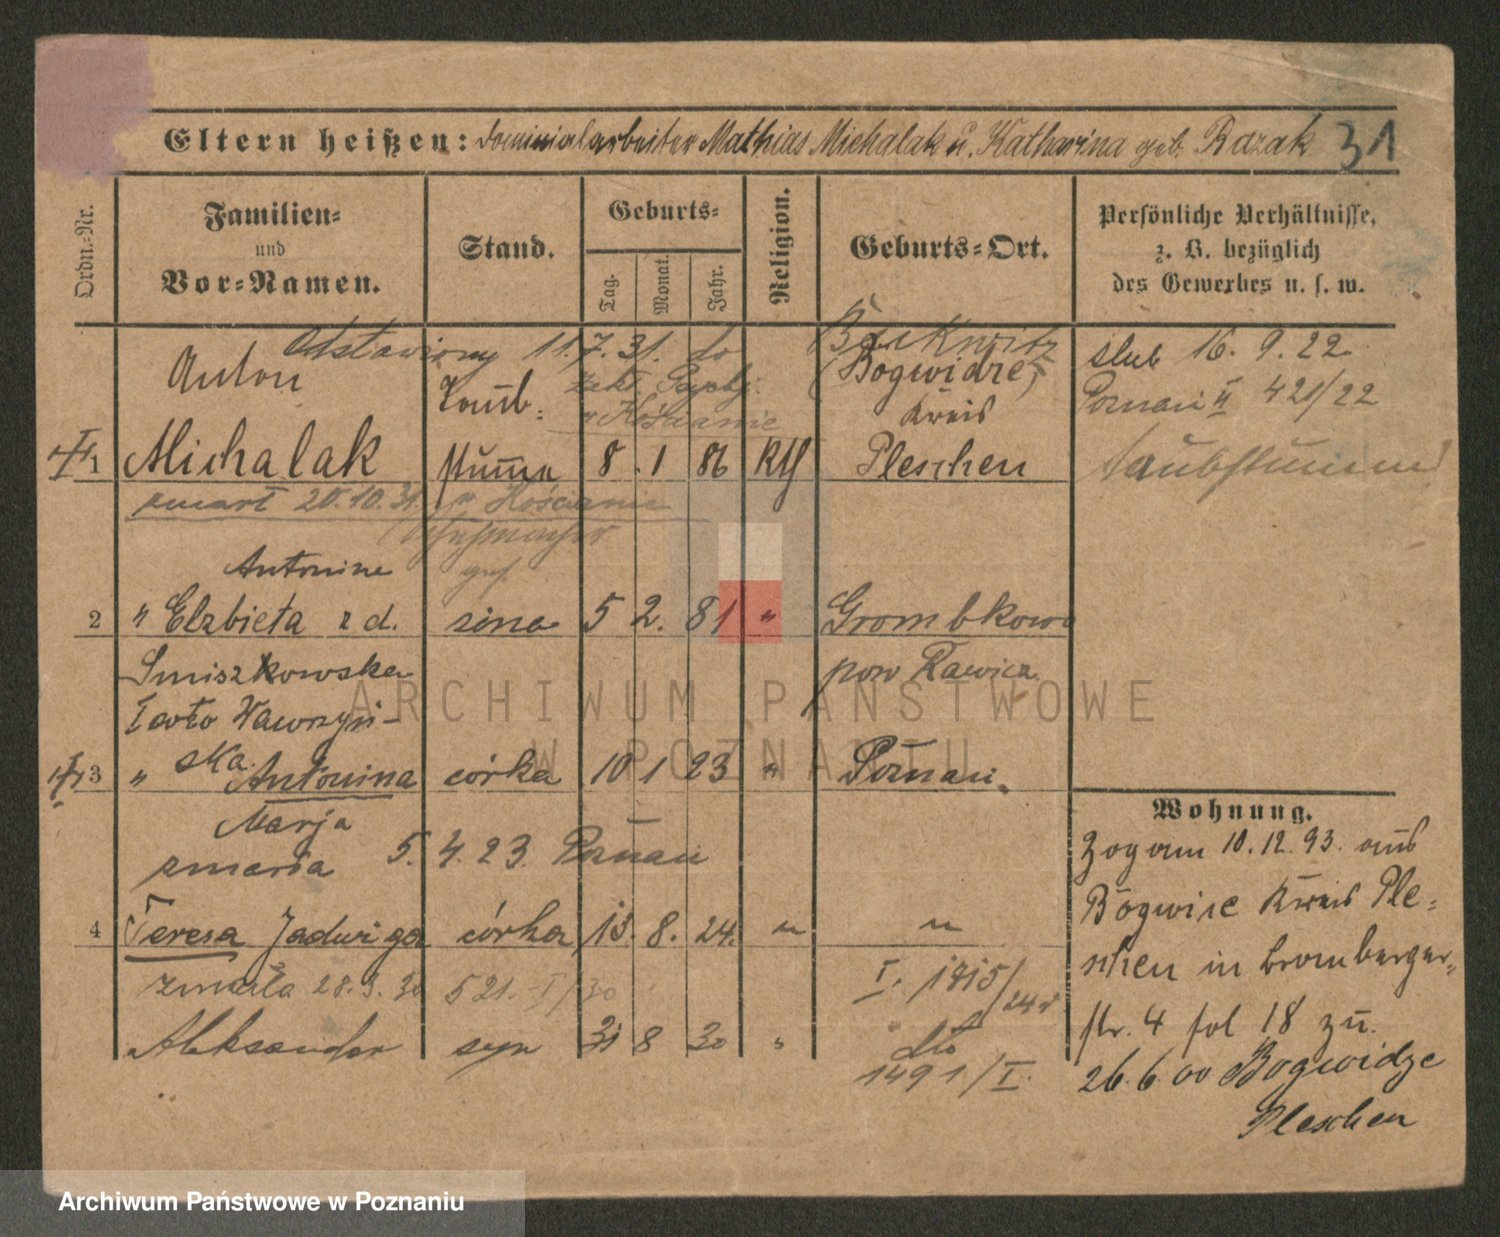 Eltern heißen: Dominialarbeiter Mathias Michalak u. Katharina geb. Razak 31
Ordn.-Nr.
Familien-
und
Vor-Namen.
Stand.
Geburts-
Tag.
Monat.
Jahr.
Religion.
Geburts-Ort.
Persönliche Verhältnisse,
z. B. bezüglich
des Gewerbes u. s. w.
Odstawiony 11.7.31. do
zakł. Psych.
w Kościanie
Anton
Taub-
(Bogwidze)
Kreis
ślub 16. 9. 22
Poznań II 421/22
1 Michalak stumm 8. 1 86 Kth Pleschen taubstumm
zmarł 20.10.31. w Kościanie
Antonine
2 " Elżbieta z d. żona 5 2. 81 " Grombkowo
Smiszkowska pow Rawicz
Wawrzyń-
ska
3 " Antonina córka 10 1 23 " Poznań.
Marja
zmarła 5. 4. 23. Poznań
4 Teresa Jadwiga córka 13. 8. 24. " "
zmarła 28.3.30 521.-I/30 I. 1815/24
Aleksander syn 31 8 30 " dto
1491/I.
Wohnung.
Zog am 10.12.93. aus
Bogwize Kreis Ple-
schen in Bromberger-
str. 4 fol 18 zu.
26.6.00 Bogwidze
Pleschen
ARCHIWUM PAŃSTWOWE
W POZNANIU
Archiwum Państwowe w Poznaniu